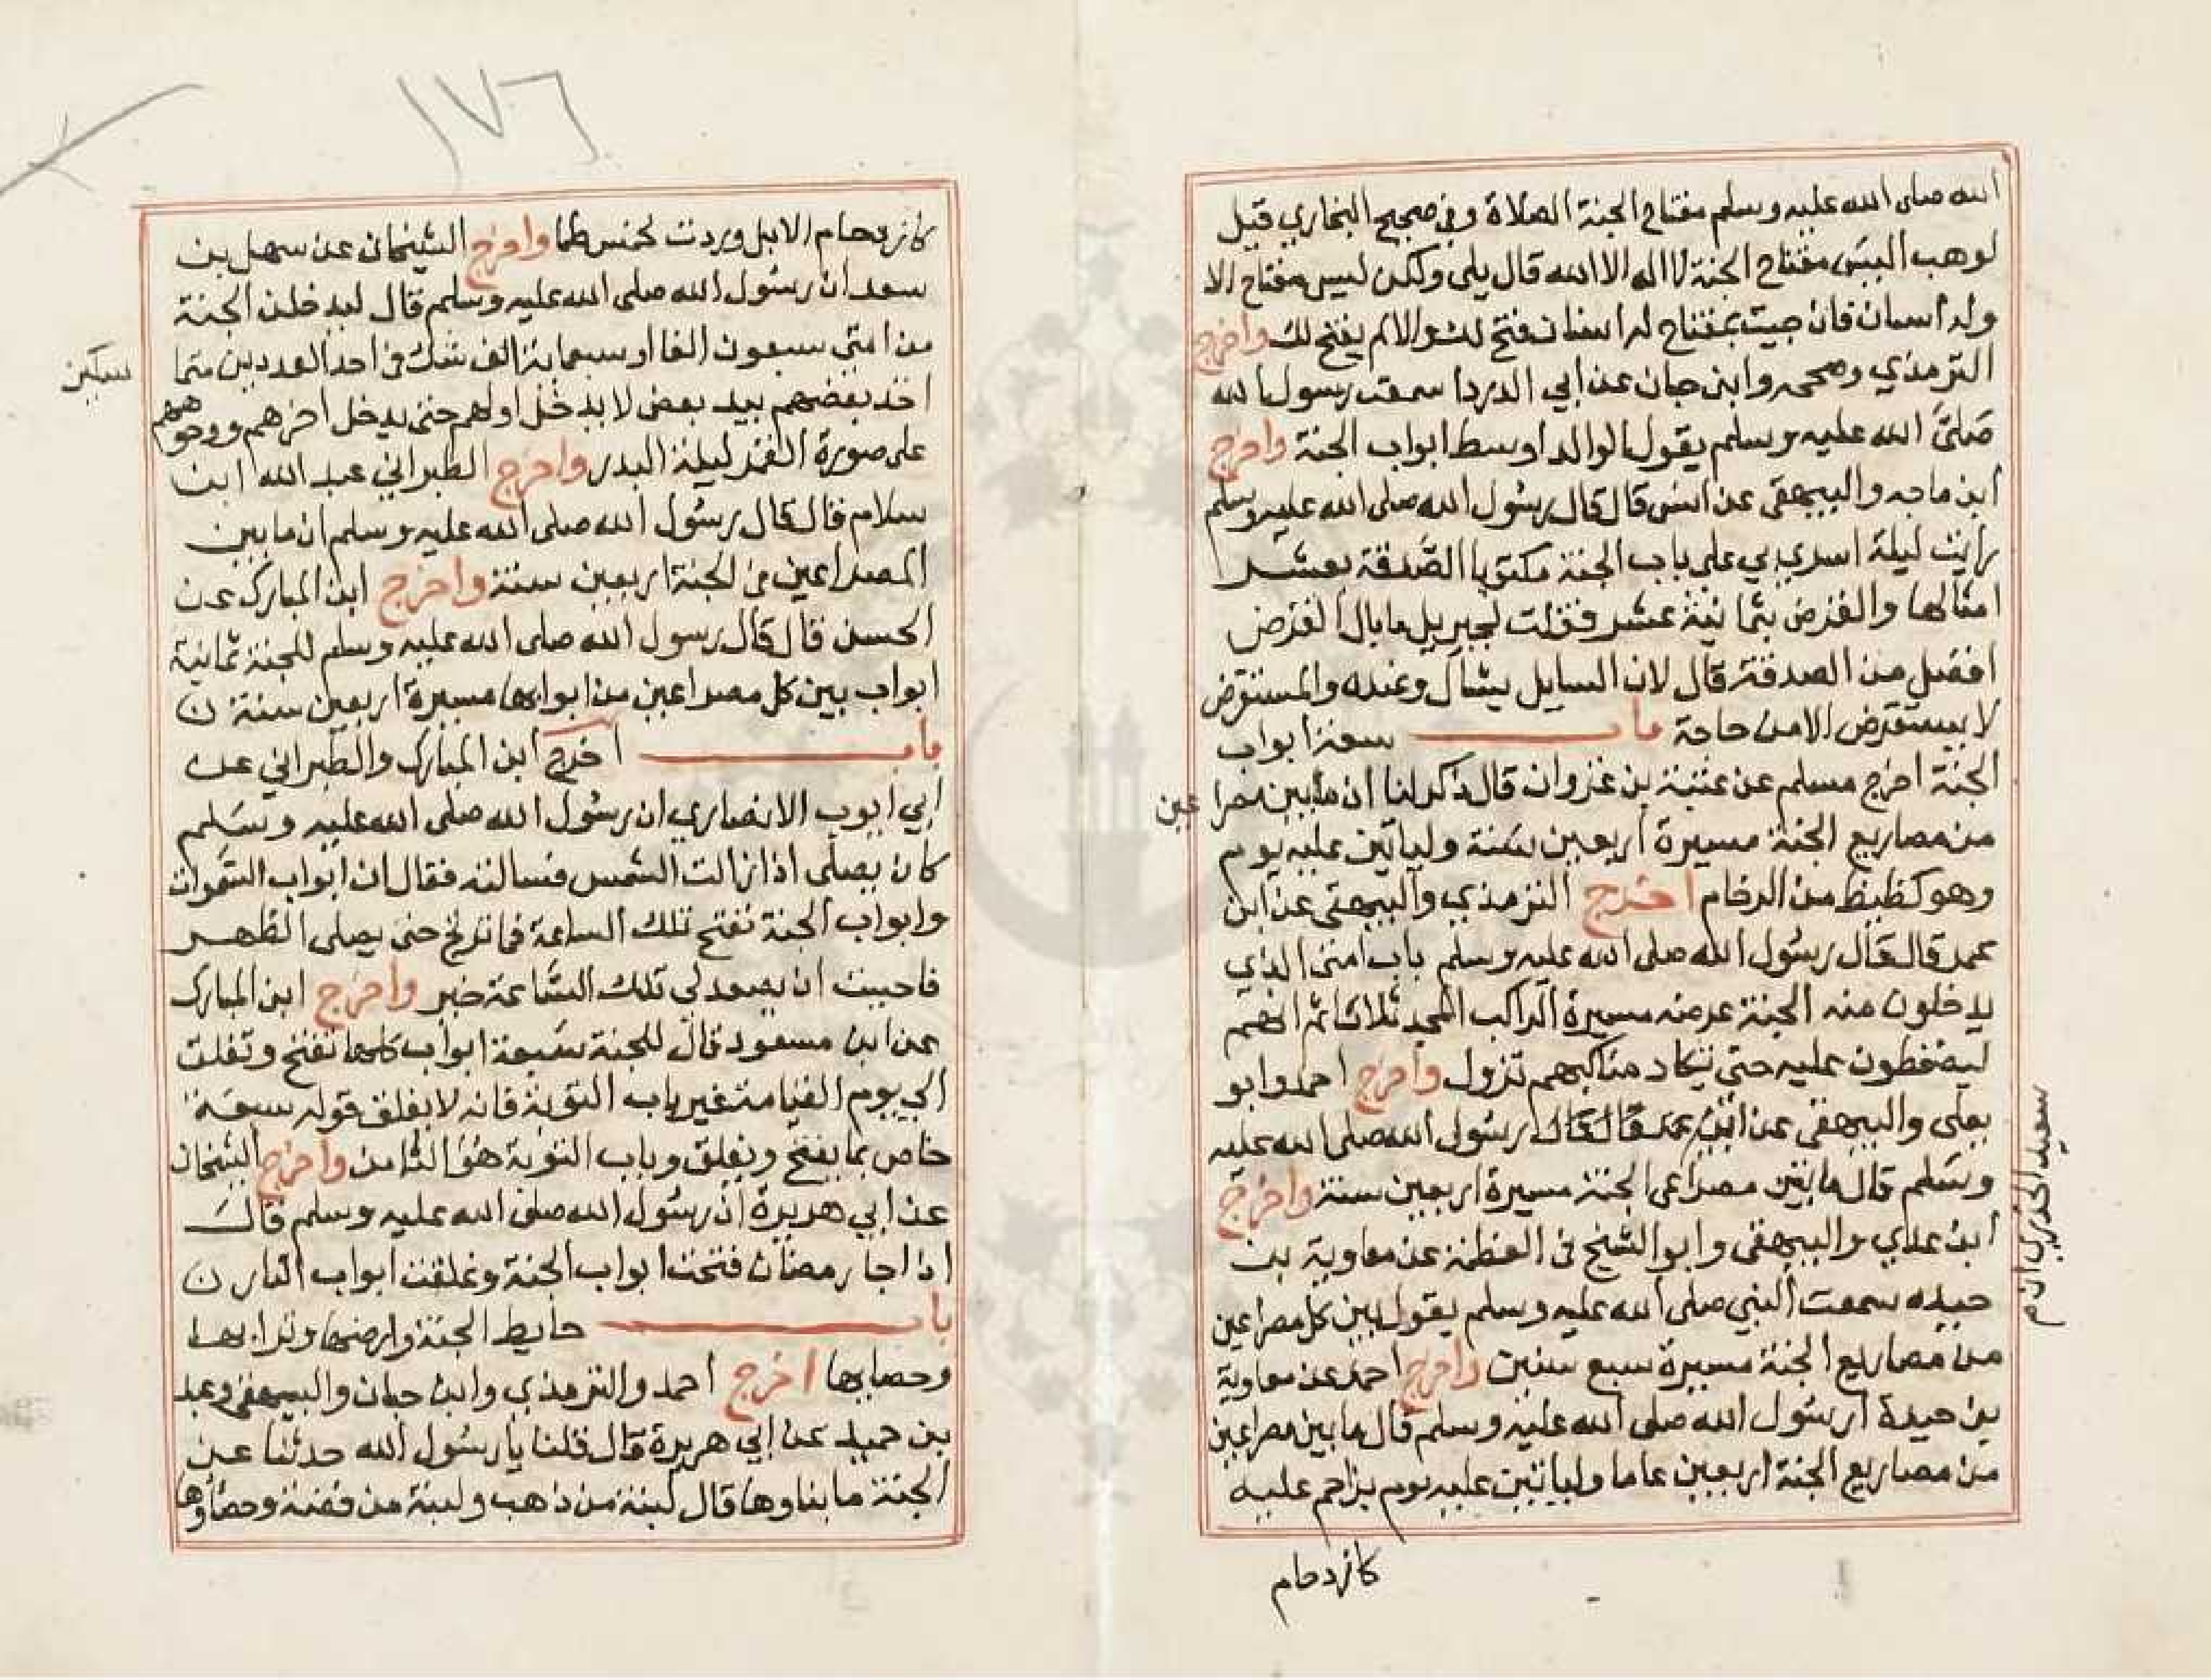 الله صلى الله عليه وسلم مفتاح الجنة الصلاة وفي صحيح البخاري قيل
لوهب اليس مفتاح الجنة لا اله الا الله قال بلى ولكن ليس مفتاح الا
وله اسنان فان جيت بمفتاح له اسنان فتح لك والا لم يفتح لك واخرج
الترمذي وصححه وابن حبان عن ابي الدردا سمعت رسول الله
صلى الله عليه وسلم يقول الوالد اوسط ابواب الجنة واخرج
ابن ماجه والبيهقي عن انس قال قال رسول الله صلى الله عليه وسلم
رايت ليلة اسري بي على باب الجنة مكتوبا الصدقة بعشر
امثالها والقرض بثمانية عشر فقلت لجبريل ما بال القرض
افضل من الصدقة قال لان السايل يسأل وعنده والمستقرض
لا يستقرض الا من حاجة باب سعة ابواب
الجنة اخرج مسلم عن عتبة بن غزوان قال ذكر لنا ان ما بين مصراعين
من مصاريع الجنة مسيرة اربعين سنة ولياتين عليه يوم
وهو كظيظ من الزحام اخرج الترمذي والبيهقي عن ابن
عمر قال قال رسول الله صلى الله عليه وسلم باب امتي الذي
يدخلون منه الجنة عرضه مسيرة الراكب المجد ثلاثا ثم انهم
ليضغطون عليه حتى تكاد مناكبهم تزول واخرج احمد وابو
يعلى والبيهقي عن قال قال رسول الله صلى الله عليه
وسلم قال ما بين مصراعي الجنة مسيرة اربعين سنة واخرج
ابن عدي والبيهقي وابو الشيخ في العظمة عن معاوية بن
حيده سمعت النبي صلى الله عليه وسلم يقول بين كل مصراعين
من مصاريع الجنة مسيرة سبع سنين واخرج احمد عن معاوية
بن حيدة ان رسول الله صلى الله عليه وسلم قال ما بين مصراعين
من مصاريع الجنة اربعين عاما ولياتين عليه يوم يزاحم عليه
كازدحام
سعيد الخدري ان
١٧٦
كازدحام الابل وردت لخمس ظما واخرج الشيخان عن سهل بن
سعد ان رسول الله صلى الله عليه وسلم قال ليدخلن الجنة
من امتي سبعون الفا او سبعماية الف شك في احد العددين متما
سكين
اخذ بعضهم بيد بعض لا يدخل اولهم حتى يدخل اخرهم ووجوههم
على صورة القمر ليلة البدر واخرج الطبراني عبد الله ابن
سلام قال قال رسول الله صلى الله عليه وسلم ان ما بين
المصراعين في الجنة اربعين سنة واخرج ابن المبارك عن
الحسن قال قال رسول الله صلى الله عليه وسلم للجنة ثمانية
ابواب بين كل مصراعين من ابوابها مسيرة اربعين سنة ن
باب اخرج ابن المبارك والطبراني عن
ابي ايوب الانصاري ان رسول الله صلى الله عليه وسلم
كان يصلي اذا زالت الشمس فسالته فقال ان ابواب السموات
وابواب الجنة تفتح تلك الساعة فما ترتج حتى يصلى الظهر
فاحببت ان يصعد لي تلك الساعة خير واخرج ابن المبارك
عن ابن مسعود قال للجنة سبعة ابواب كلها تفتح وتغلق
الى يوم القيامة غير باب التوبة فانه لا يغلق قوله سبعة
خاص بما يفتح ويغلق وباب التوبة هو الثامن واخرج الشيخان
عن ابي هريرة ان رسول الله صلى الله عليه وسلم قال
اذا جا رمضان فتحت ابواب الجنة وغلقت ابواب النار ن
باب حايط الجنة وارضها وترابها
وحصابها اخرج احمد والترمذي وابن حبان والبيهقي وعبد
بن حميد عن ابي هريرة قال قلنا يا رسول الله حدثنا عن
الجنة ما بناوها قال لبنة من ذهب ولبنة من فضة وحصاوها